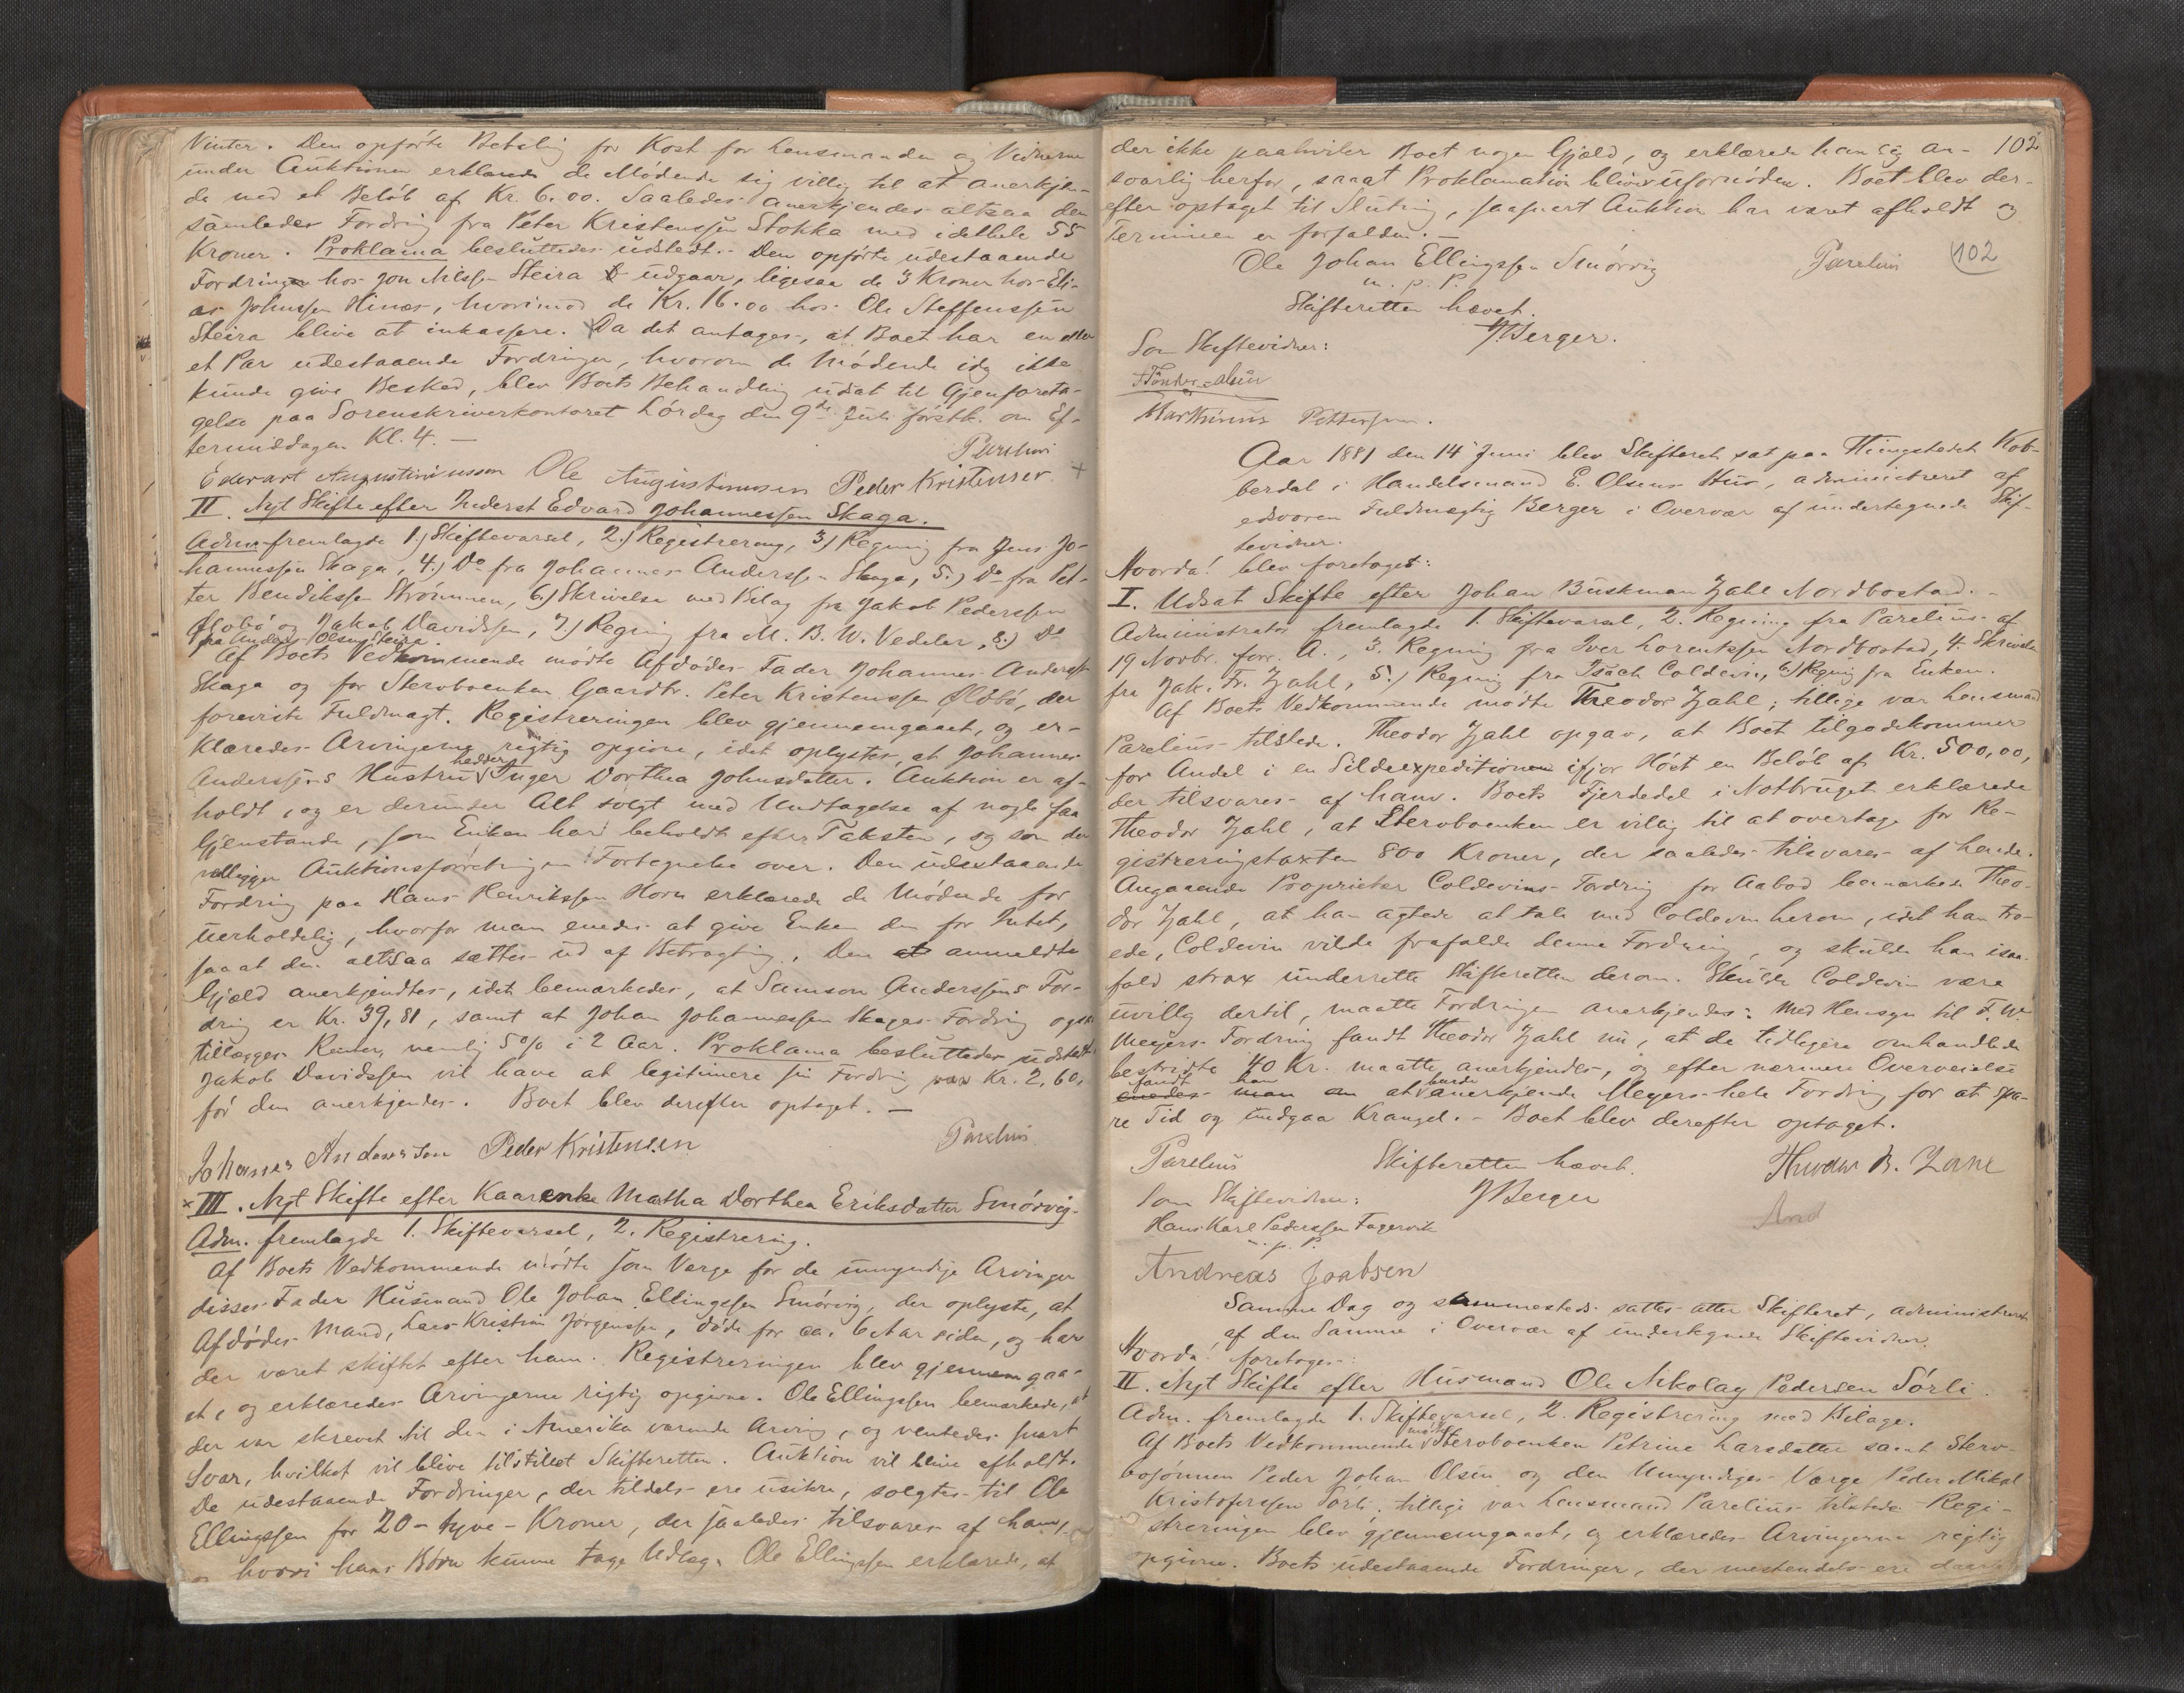 Vinter. Den opførte Betaling for Kost for Lensmanden og Vidnerne
under Auktionen erklærede de Mødende sig villig til at anerkjen-
de med et Beløb af Kr. 6.00. Saaledes anerkjendes altsaa den
samlede Fordring fra Peter Kristenssen Stokka med idethele 55
Kroner. Proklama besluttedes udstedt. - Den opførte udestaaende
Fordringen hos Jon Nilss. Steira udgaar, ligesaa de 3 Kroner hos Eli-
as Johnssen Hinæs, hvorimod de Kr. 16.00 hos Ole Steffenssen
Steira blive at inkassere. Da det antages, at Boet har en eller
et Par udestaaende Fordringer, hvorom de Mødende idag ikke
kunde give Besked, blev Boets Behandling udsat til Gjenforeta-
gelse paa Sorenskriverkontoret Lørdag den 9de Juli førstk. om Ef-
termiddagen Kl. 4. —
Parelius
Edevart Augustinusson Ole Augustinussen Peder Kristensen +
II. Nyt Skifte efter Inderst Edvard Johannessen Skaga.
Adm. fremlagde 1.) Skiftevarsel, 2.) Registrering, 3.) Regning fra Jens Jo-
hannessen Skaga, 4.) Do fra Johannes Anderssen Skaga, 5.) Do fra Pet-
ter Bendikssen Strømmen, 6.) Skrivelse med Bilag fra Jakob Pederssen
og Jakob Davidssen, 7.) Regning fra M. B. W. Vedeler, 8.) Do
fra Anders Olsen Steira.
Af Boets Vedkommende mødte Afdødes Fader Johannes Anderss.
Skaga og for Stervboenken Gaardbr. Peter Kristenssen Øldbø, der
foreviste Fuldmagt. Registreringen blev gjennemgaaet, og er-
klæredes Arvingerne rigtig opgivne, idet oplystes, at Johannes
hedder
Anderssens Hustru Inger Dorthea Johnsdatter. Auktion er af-
holdt, og er derunder Alt solgt med Undtagelse af nogle faa
Gjenstande, som Enken har beholdt efter Taksten, og som der
vedligger Auktionsforretningen Fortegnelse over. Den udestaaende
Fordring paa Hans Henrikssen Horn erklærede de Mødende for
uerholdelig, hvorfor man enedes at give Enken den for Intet,
saa at den altsaa sættes ud af Betragtning. Den anmeldte
Gjæld anerkjendtes, idet bemærkedes, at Samson Anderssens For-
dring er Kr. 39,81, samt at Johan Johannessen Skagas Fordring ogsaa
tillægges Renter, nemlig 5 0/0 i 2 Aar. Proklama besluttedes udstedt.
Jakob Davidssen vil have at legitimere sin Fordring Kr. 2,60,
før den anerkjendes. Boet blev derefter optaget. —
Parelius
Johanes Andersson Peder Kristensen
× III. Nyt Skifte efter Kaarenke Martha Dorthea Eriksdatter Smørvig.
Adm. fremlagde 1. Skiftevarsel, 2. Registrering.
Af Boets Vedkommende mødte som Værge for de umyndige Arvinger
disses Fader Husmand Ole Johan Ellingssen Smørvig, der oplyste, at
Afdødes Mand, Lars Kristian Jørgenssen, døde for ca. 6 Aar siden, og har
der været skiftet efter ham. Registreringen blev gjennemgaa-
et, og erklæredes Arvingerne rigtig opgivne. Ole Ellingssen bemærkede, at
der var skrevet til den i Amerika værende Arving, og ventedes snart
Svar, hvilket vil blive tilstillet Skifteretten. Auktion vil blive afholdt.
De udestaaende Fordringer, der tildels ere usikre, solgtes til Ole
Ellingssen for 20 - tyve - Kroner, der saaledes tilsvares af ham,
og hvori hans Børn kunne tage Udlæg. Ole Ellingssen erklærede, at
der ikke paahviler Boet nogen Gjæld, og erklærede han sig an- 102
svarlig herfor, saaat Proklamation bliver ufornøden. Boet blev der-
efter optaget til Slutning, saasnart Auktion har været afholdt og
Terminen er forfalden. —
Ole Johan Ellingssen Smørvig
Parelius 102
m. p. P.
Skifteretten hævet.
JBerger.
Som Skiftevidner:
Martinus Pettersen.
Aar 1881 den 14 Juni blev Skifteret sat paa Thingstedet Kob-
berdal i Handelsmand E. Olsens Hus, administreret af
edsvoren Fuldmægtig Berger i Overvær af undertegnede Skif-
tevidner.
Hvorda! blev foretaget:
I. Udsat Skifte efter Johan Buskman Zahl Nordbostad. -
Administrator fremlagde 1. Skiftevarsel, 2. Regning fra Parelius af
19 Novbr. forr. A., 3. Regning fra Iver Lorentssen Nordbostad, 4. Skrivelse
fra Jak. Fr. Zahl, 5.) Regning fra Isach Coldevin, 6.) Regning fra Enken.
Af Boets Vedkommende mødte Theodor Zahl; tillige var Lensmand
Parelius tilstede. Theodor Zahl opgav, at Boet tilgodekommer
for Andel i en Sildeexpedition ifjor Høst en Beløb af Kr. 500,00,
der tilsvares af ham. Boets Fjerdedel i Notbruget erklærede
Theodor Zahl, at Stervboenken er villig til at overtage for Re-
gistreringstaxten 800 Kroner, der saaledes tilsvares af hende.
Angaaende Proprietær Coldevins Fordring for Aabod bemærkede Theo-
dor Zahl, at han agtede at tale med Coldevin herom, idet han tro-
ede, Coldevin vilde frafalde denne Fordring, og skulde han isaa-
fald strax underrette Skifteretten derom. Skulde Coldevin være
uvillig dertil, maatte Fordringen anerkjendes. Med Hensyn til F. W.
Meyers Fordring fandt Theodor Zahl nu, at de tidligere omhandlede
bestridte 40 Kr. maatte anerkjendes, og efter nærmere Overveielse
fandt han burde
enedes man om at anerkjende Meyers hele Fordring for at spa-
re Tid og undgaa Krangel. - Boet blev derefter optaget.
Parelius Skifteretten hævet. Theodor B. Zahl
Som Skiftevidner: JBerger
Hans Karl Pederssen Fagervik
m. p. P.
And
Andreas Jaabsen
Samme Dag og sammesteds sattes atter Skifteret, administreret
af den Samme i Overvær af undertegnede Skiftevidner.
Hvorda! foretoges:
II. Nyt Skifte efter Husmand Ole Nikolay Pedersen Sørli.
Adm. fremlagde 1. Skiftevarsel, 2. Registrering med Bilage.
mødte
Af Boets Vedkommende Stervboenken Petrine Larsdatter samt Sterv-
bosønnen Peder Johan Olsen og den Umyndiges Værge Peder Mikal
Kristofersen Sørli; tillige var Lensmand Parelius tilstede. Regi-
streringen blev gjennemgaaet, og erklæredes Arvingerne rigtig
opgivne. Boets udestaaende Fordringer, der mestendels ere